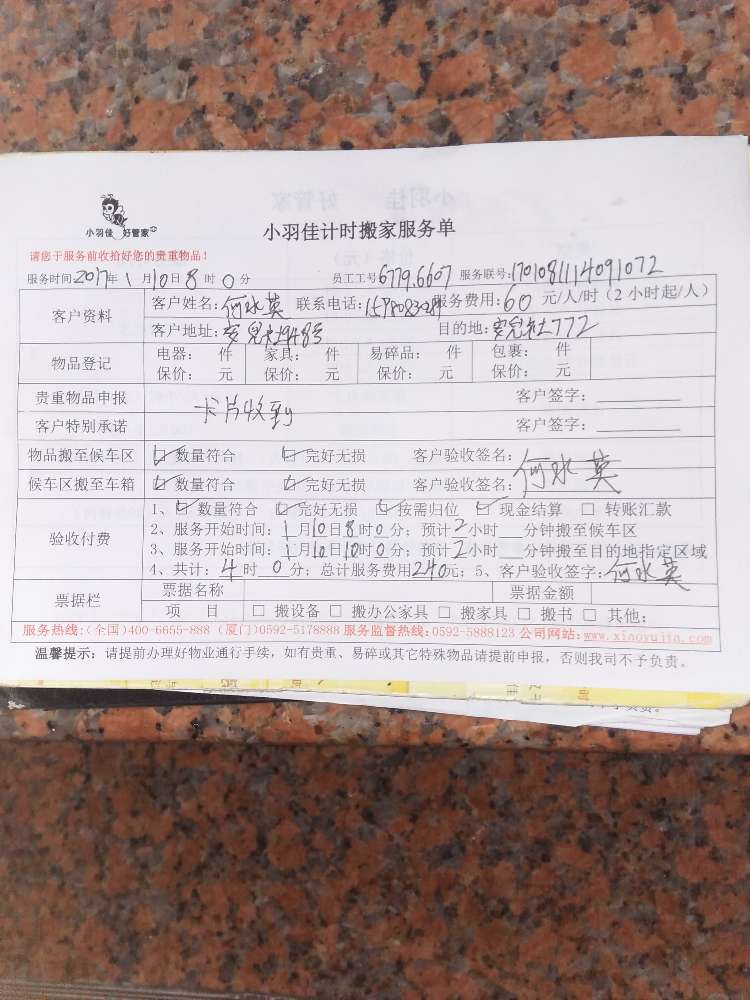 小羽佳 好管家
小羽佳计时搬家服务单
请您于服务前收拾好您的贵重物品！
服务时间:2017年1月10日8时0分 员工工号6779.6607 服务联号:1701081114091072
客户资料
客户姓名:何水英 联系电话: 服务费用:60元/人/时（2小时起/人）
客户地址: 目的地:
物品登记
电器： 件 家具： 件 易碎品： 件 包裹： 件
保价： 元 保价： 元 保价： 元 保价： 元
贵重物品申报 客户签字：
卡片收到
客户特别承诺 客户签字：
物品搬至候车区 ☑数量符合 ☑完好无损 客户验收签名：
何水英
候车区搬至车箱 ☑数量符合 ☑完好无损 客户验收签名：
验收付费
1、☑数量符合 ☑完好无损 ☑按需归位 ☑现金结算 □转账汇款
2、服务开始时间：1月10日8时0分；预计2小时__分钟搬至候车区
3、服务开始时间：1月10日10时0分；预计2小时__分钟搬至目的地指定区域
4、共计：4时0分；总计服务费用240元；5、客户验收签字：何水英
票据栏
票据名称 票据金额
项 目 □搬设备 □搬办公家具 □搬家具 □搬书 □其他：
服务热线:(全国)400-6655-888 (厦门)0592-5178888 服务监督热线:0592-5888123 公司网站:www.xiaoyujia.com
温馨提示：请提前办理好物业通行手续，如有贵重、易碎或其它特殊物品请提前申报，否则我司不予负责。